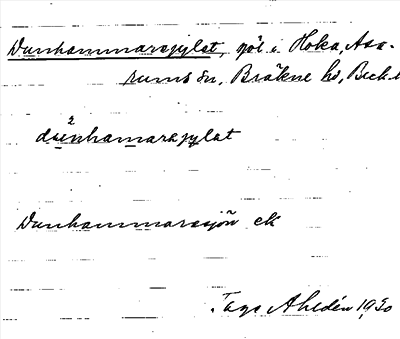 Dunhammaragylet, göl i Hoka, Asa-
rums sn, Bräkne hd, Blek.
du²nhamaragylat
Dunhammarasjön ek
Tage Ahldén 1930